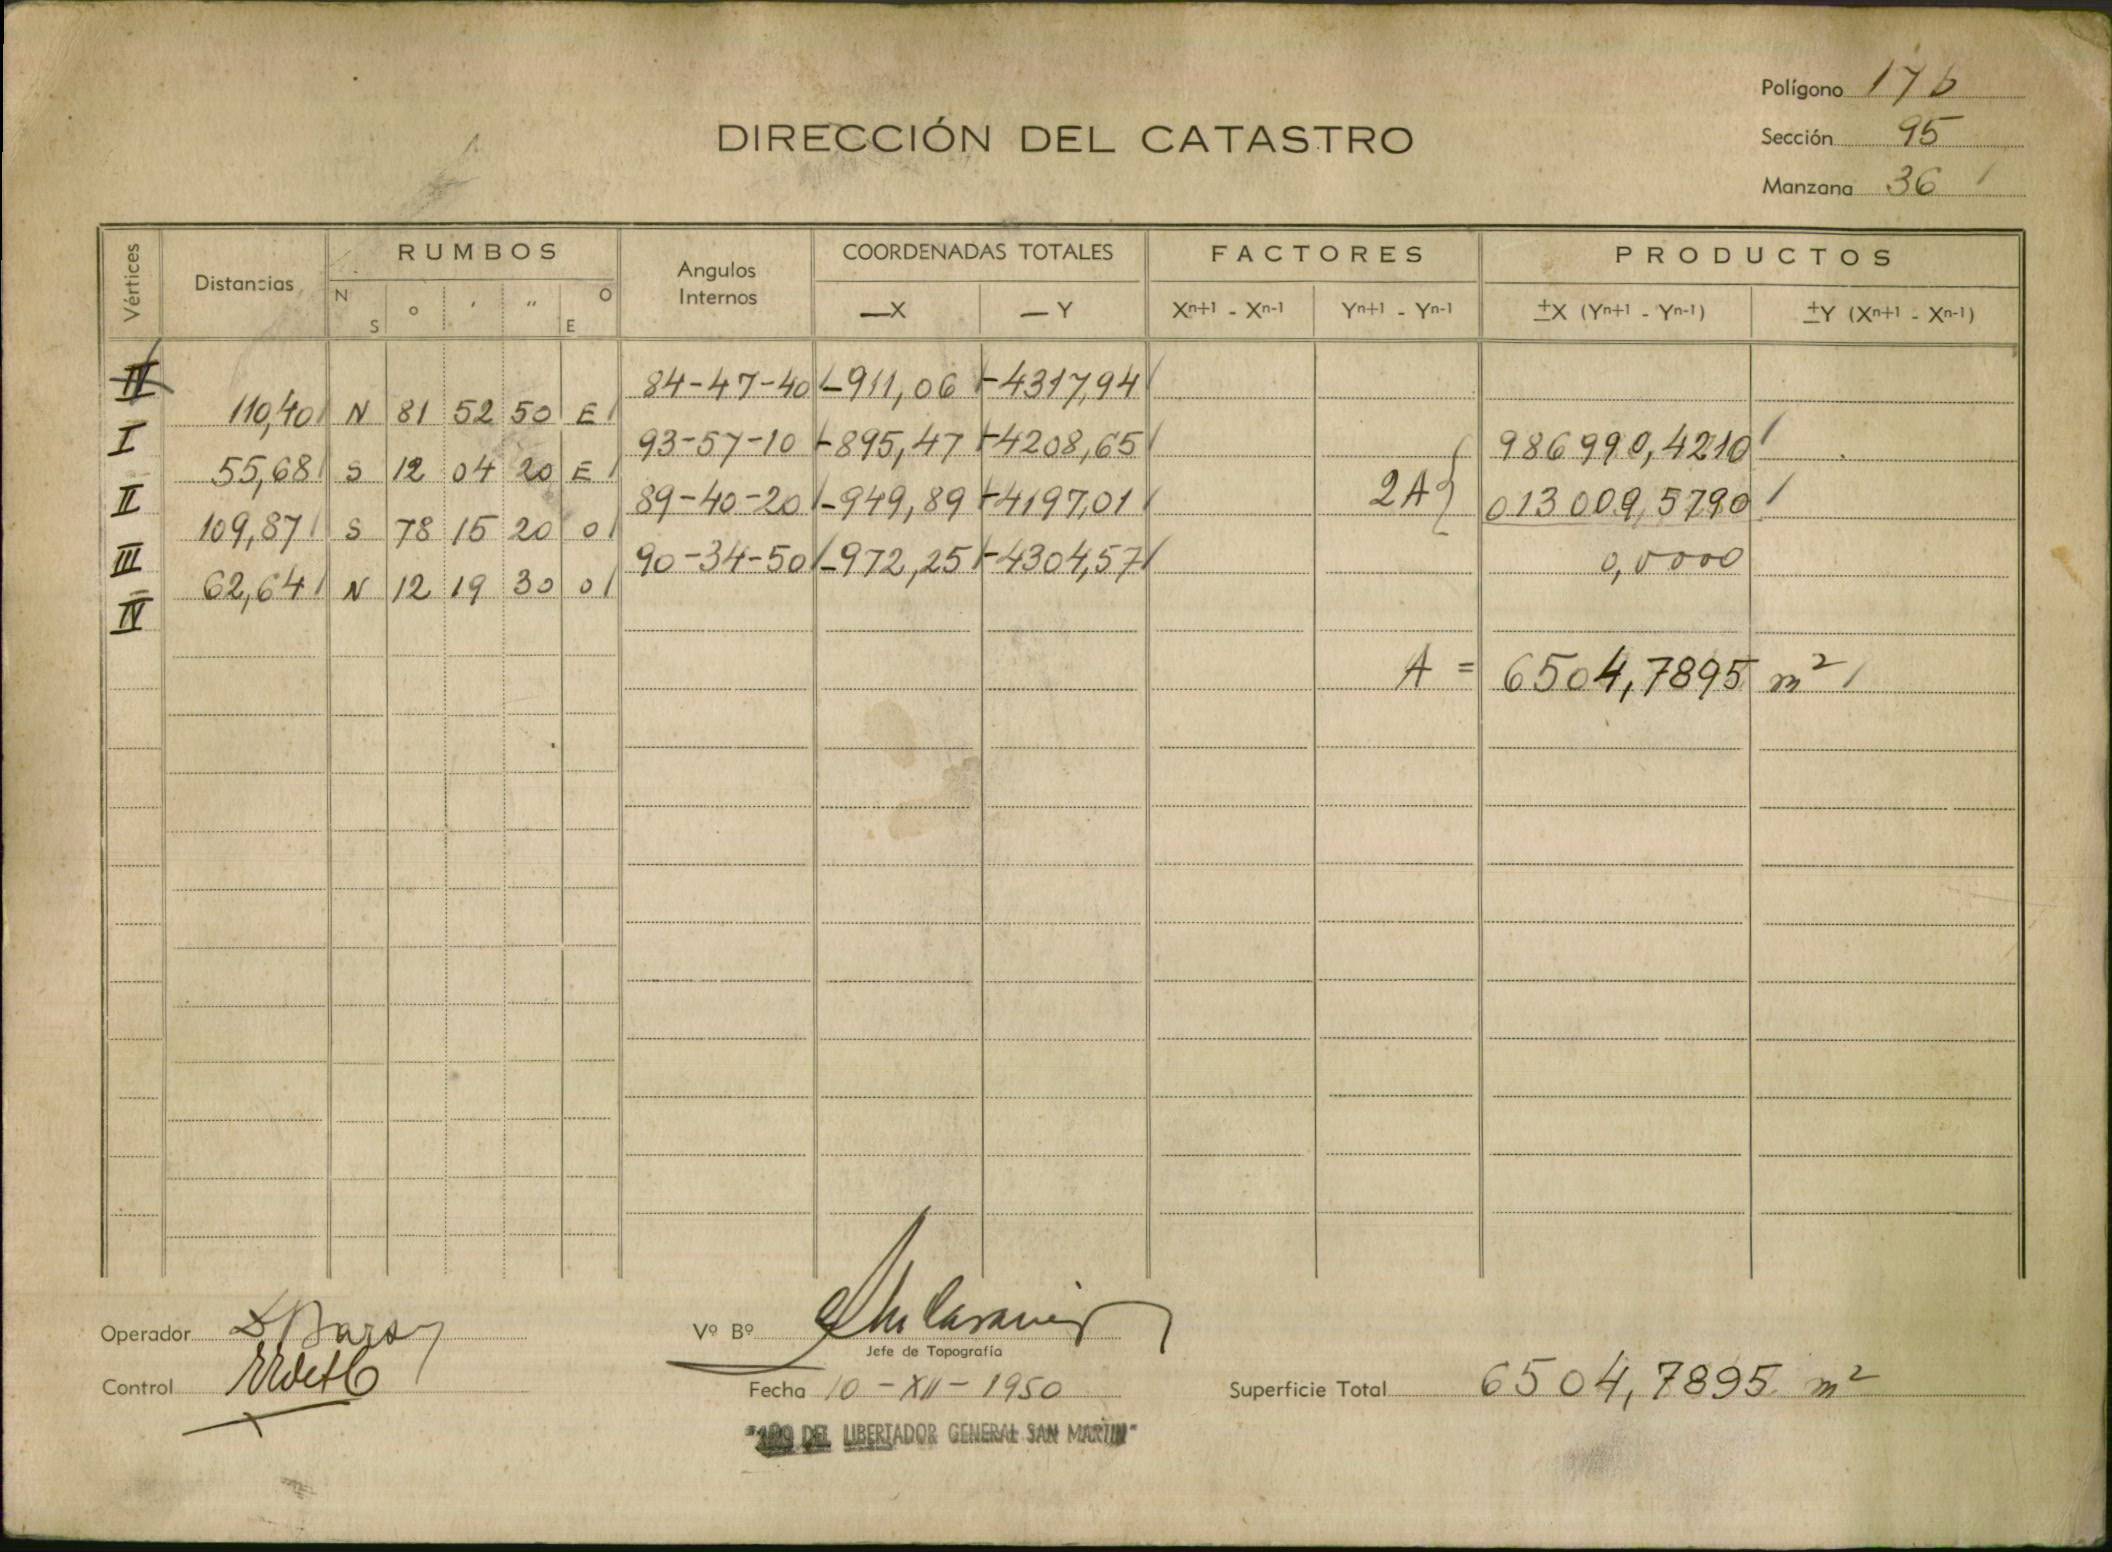 Polígono 17 b
Sección 95
Manzana 36
DIRECCIÓN DEL CATASTRO
Vértices Distancias RUMBOS Angulos Internos COORDENADAS TOTALES FACTORES PRODUCTOS
N S ° ' " O E —X —Y Xn+1 - Xn-1 Yn+1 - Yn-1 ±X (Yn+1 - Yn-1) ±Y (Xn+1 - Xn-1)
IV 84-47-40 -911,06 -4317,94
110,40 N 81 52 50 E
I 93-57-10 -895,47 -4208,65 986990,4210
55,68 S 12 04 20 E
II 89-40-20 -949,89 -4197,01 2A { 013009,5790
109,87 S 78 15 20 O
III 90-34-50 -972,25 -4304,57 0,0000
62,64 N 12 19 30 O
IV
A = 6504,7895 m²
Operador
Vº Bº
Jefe de Topografía
Control
Fecha 10-XII-1950
Superficie Total 6504,7895 m²
"AÑO DEL LIBERTADOR GENERAL SAN MARTIN"